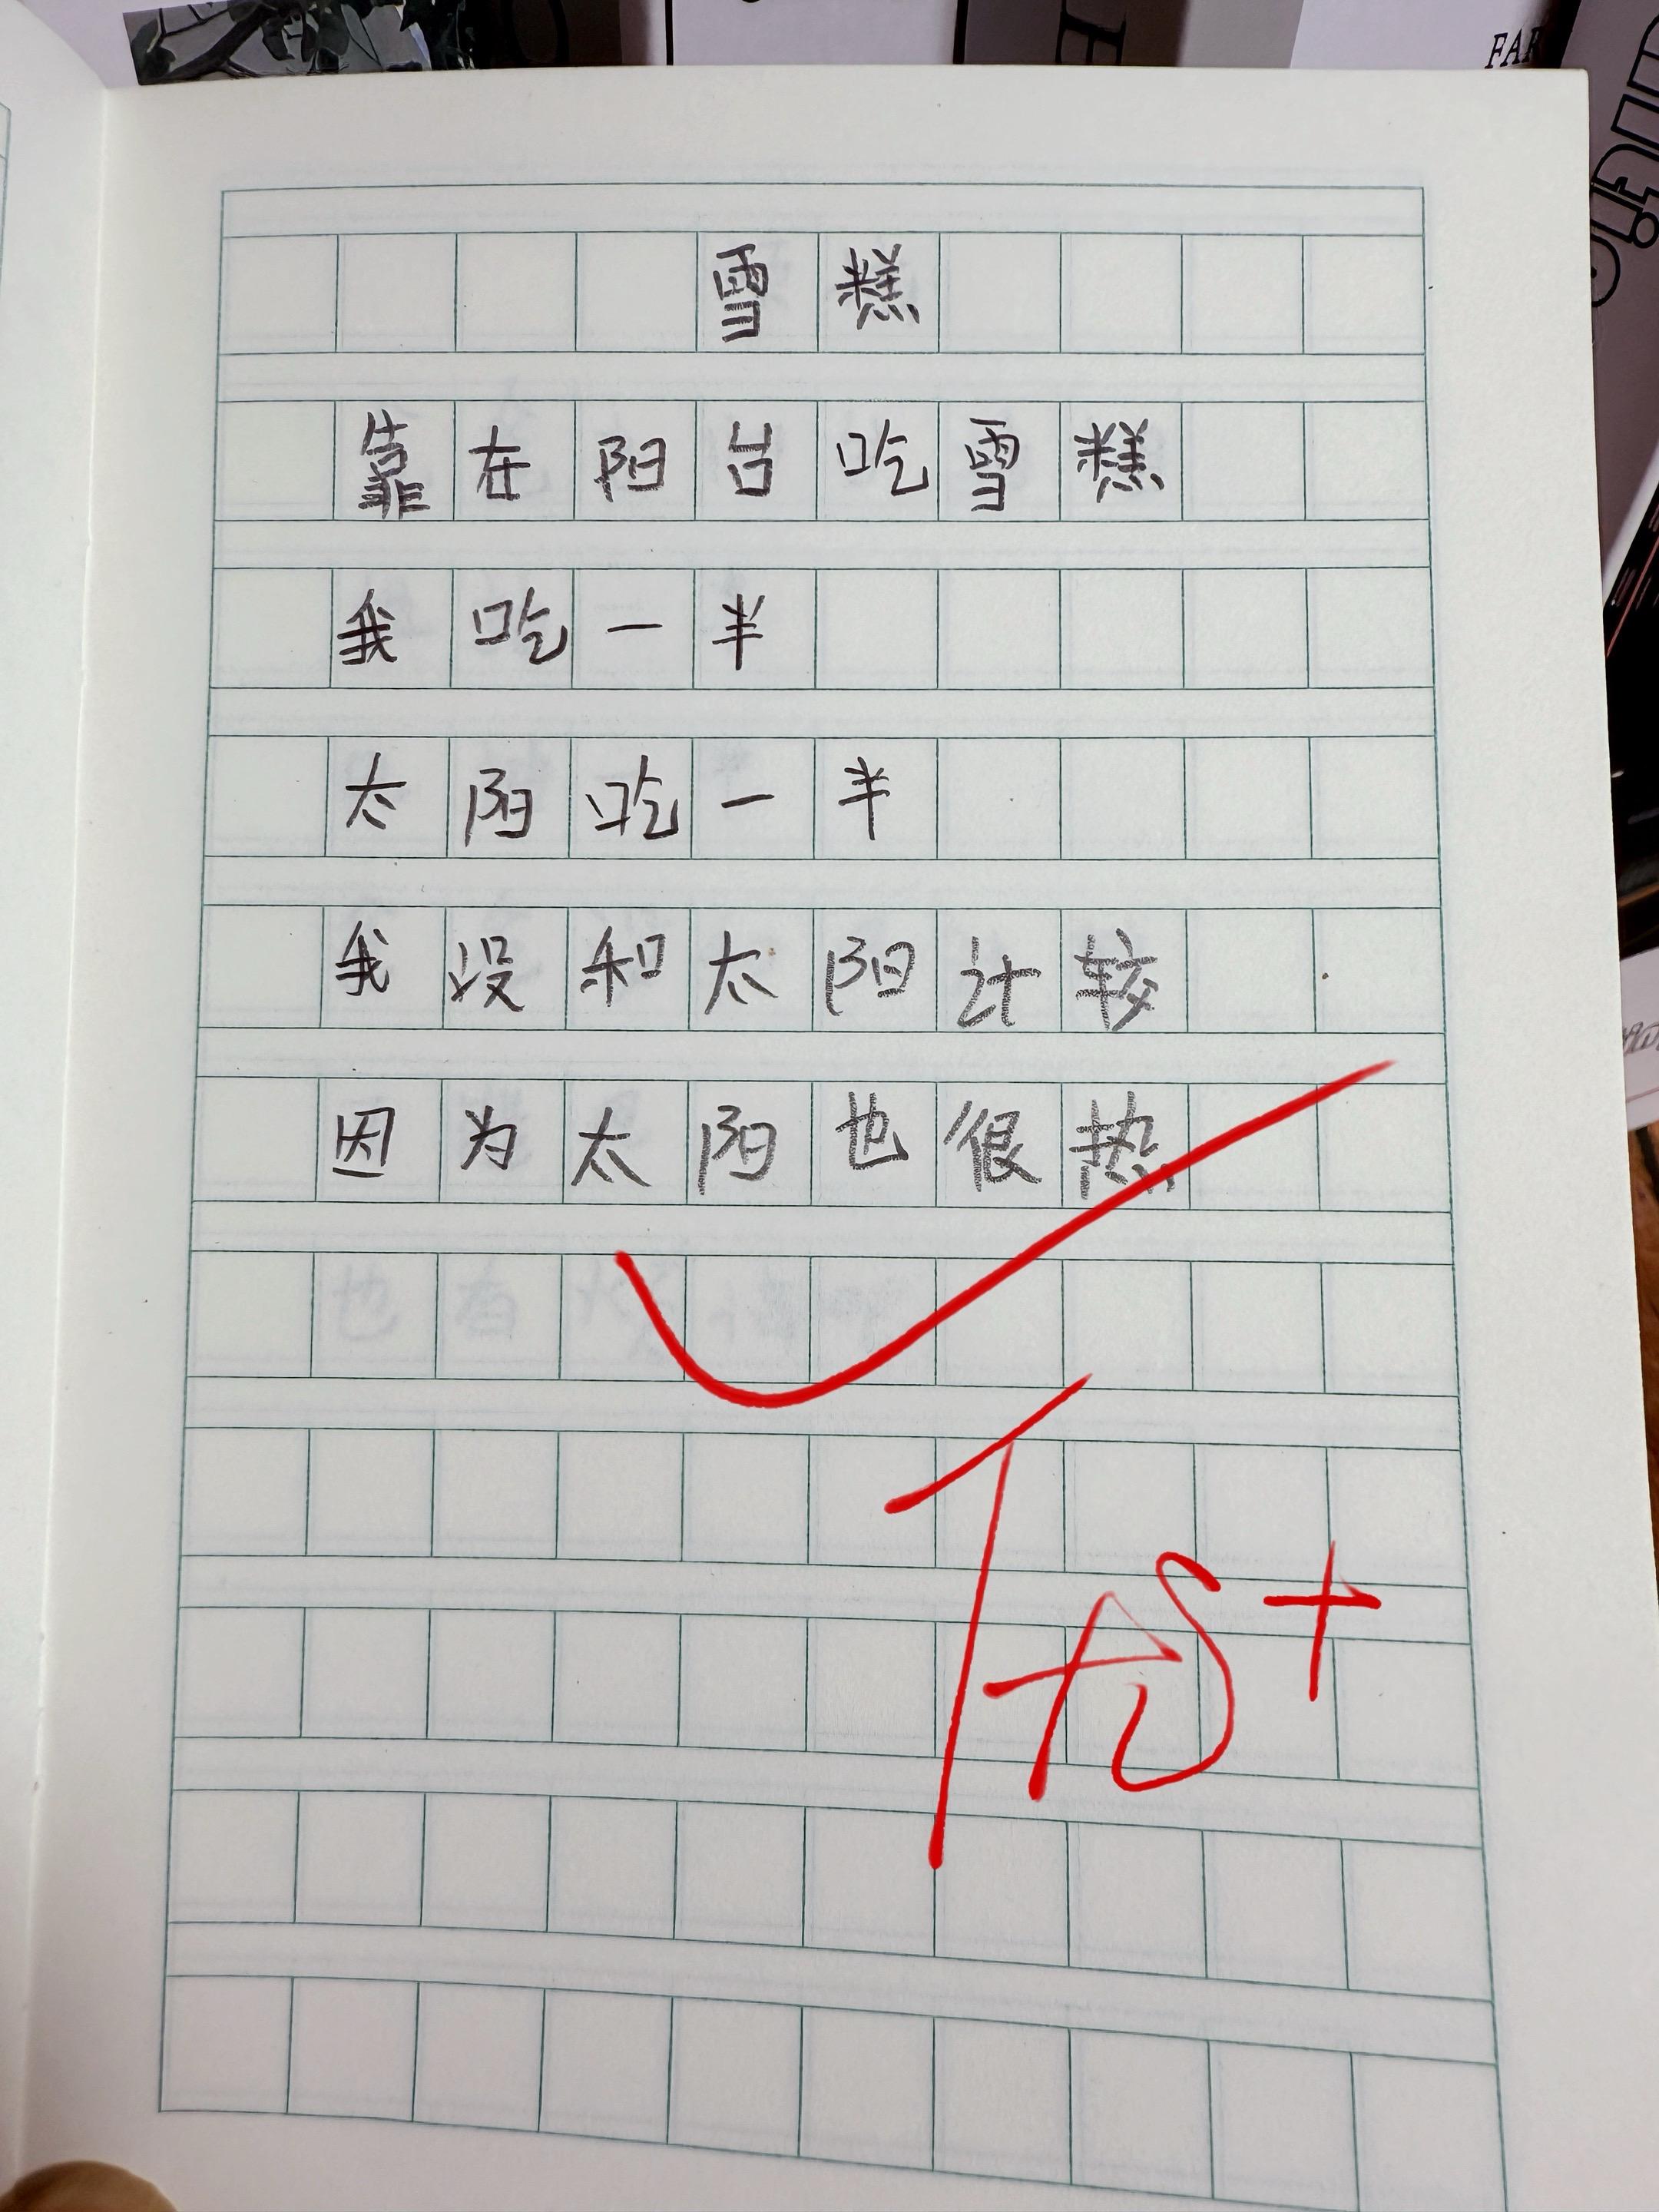 FAR
雪糕
靠在阳台吃雪糕
我吃一半
太阳吃一半
我没和太阳计较
因为太阳也很热